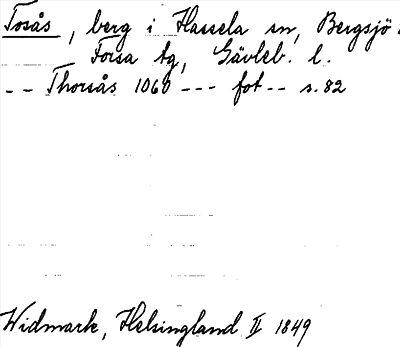 Tosås, berg i Hassela sn, Bergsjö o.
Forsa tg, Gävleb. l.
-- Thorsås 1060 --- fot -- s. 82
Widmark, Helsingland II 1849